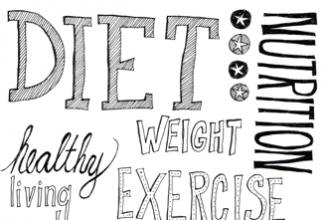 DIET
NUTRITION
WEIGHT
healthy
living
EXERCISE